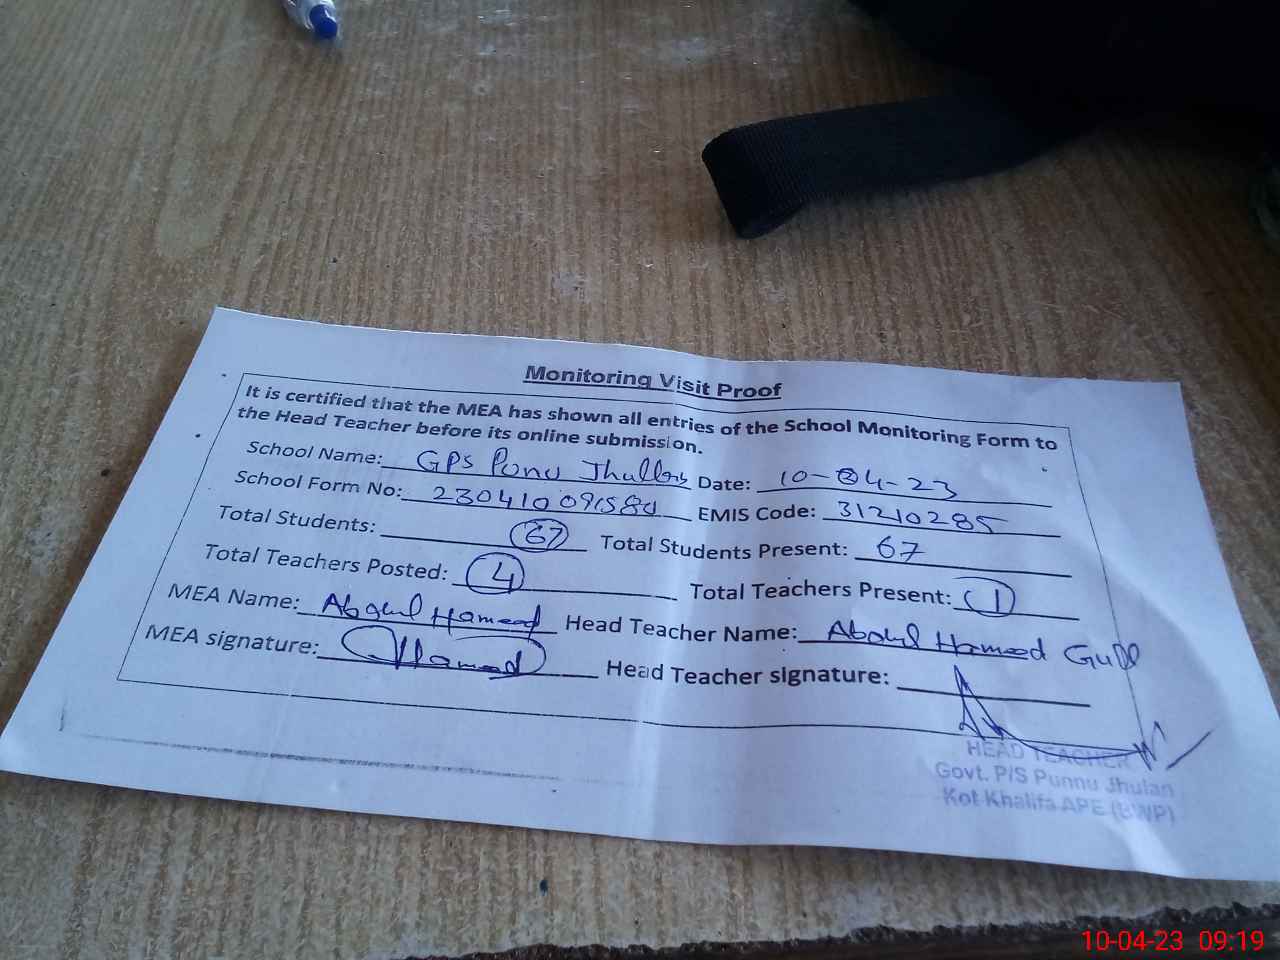 Monitoring Visit Proof
It is certified that the MEA has shown all entries of the School Monitoring Form to
the Head Teacher before its online submission.
School Name: GPS Punu Jhullan Date: 10-04-23
School Form No: EMIS Code: 31210285
Total Students: 67 Total Students Present: 67
Total Teachers Posted: 4 Total Teachers Present: 1
MEA Name: Abdul Hameed Head Teacher Name: Abdul Hameed Gull
MEA signature: Hameed Head Teacher signature:
HEAD TEACHER
Govt. P/S Punnu Jhulan
Kot Khalifa APE (BWP)
10-04-23 09:19